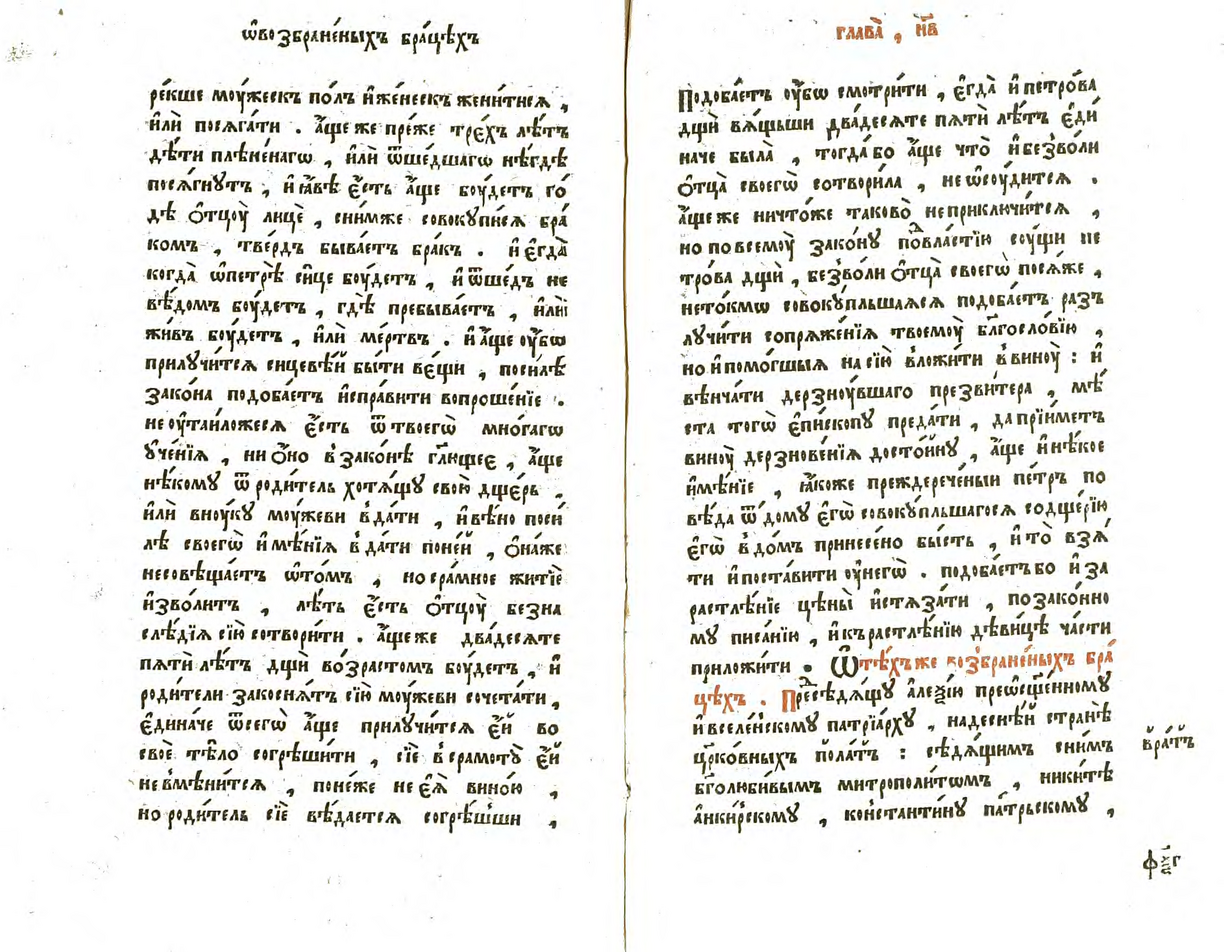 ѡ҆возбране́ныхъ бра́цѣхъ
ре́кше моу́жескъ по́лъ и҆же́нескъ жени́тисѧ ,
и҆лѝ посѧга́ти . а҆́ще же пре́же тре́хъ лѣ́тъ
дѣ́ти плѣне́нагѡ , и҆лѝ ѿше́дшагѡ нѣ́гдѣ
посѧ́гнутъ , и҆ꙗ҆́вѣ є҆́сть а҆́ще боу́детъ го́
дѣ ѻ҆тцоу̀ лицѐ , сни́мже совокупи́сѧ бра́
комъ , тве́рдъ быва́етъ бра́к . и҆ є҆гда̀
когда̀ ѡ҆петрѣ̀ си́це боу́детъ , и҆ ѿше́дъ не
вѣ́домъ боу́детъ , гдѣ̀ пребыва́етъ , и҆лѝ
жи́въ боу́детъ , и҆лѝ ме́ртвъ . и҆ а҆́ще ᲂу҆́бѡ
прилучи́тсѧ сицевѣ́й бы́ти ве́щи , поси́лѣ
зако́на подоба́етъ и҆спра́вити вопроше́нїе .
не ᲂу҆таи́ложесѧ є҆́сть ѿ твоегѡ̀ мно́гагѡ
ᲂу҆че́нїѧ , ни ѻ҆́но в зако́нѣ гл҃ющее , а҆́ще
нѣ́кому ѿ роди́тель хотѧ́щꙋ свою̀ дще́рь ,
и҆лѝ вноу́ку моу́жеви в да́ти , и҆ вѣ́но поси́
лѣ своегѡ̀ и҆мѣ́нїѧ в да́ти поне́й , ѻ҆на́же
несовѣща́етъ ѡ҆то́мъ , но сра́мное житїѐ
и҆зво́литъ , лѣ́ть є҆́сть ѻ҆тцоу̀ безна
слѣ́дїѧ сїю̀ сотвори́ти . а҆́ще же два́десѧте
пѧтѝ лѣ́тъ дщѝ во́зрастомъ боу́детъ , и҆
роди́тели закоснѧ́тъ сїю̀ моу́жеви сочета́ти ,
є҆ди́наче ѿсегѡ̀ а҆́ще прилучи́тсѧ є҆́й во
своѐ тѣ́ло согрѣши́ти , сїѐ в срамотꙋ̀ є҆́й
не вмѣни́тсѧ , поне́же не є҆ѧ̀ вино́ю ,
но роди́тель сїѐ вѣ́дается согрѣ́шши ,
глава̀ , н҃в
Подоба́етъ ᲂу҆́бѡ смотри́ти , є҆гда̀ и҆ петро́ва
дщѝ вѧ́щьши два́десѧте пѧтѝ лѣ́тъ є҆ди́
наче была̀ , тогда́ бо а҆́ще что̀ и҆ безво́ли
ѻ҆тца̀ своегѡ̀ сотвори́ла , не ѡ҆соу́дитсѧ .
а҆́ще же ничто́же таково̀ неприключи́тсѧ ,
но повсемоу̀ зако́нꙋ по́властїю соу́щи пе
тро́ва дщѝ , безво́ли ѻ҆тца̀ своегѡ̀ посѧ́же ,
нето́кмѡ совоку́пльшаѧсѧ подоба́етъ разъ
лучи́ти сопрѧже́нїѧ твоемоу̀ бл҃гослові́ю ,
но и҆ помо́гшыѧ на сїю̀ вложи́ти в виноу̀ : и҆
вѣнча́ти дерзноу́вшаго презви́тера , мѣ́
ста тогѡ̀ є҆пи́скопꙋ преда́ти , да прїи́метъ
виноу̀ дерзнове́нїѧ досто́йнꙋ , а҆́ще и҆ нѣ́кое
и҆мѣ́нїе , ꙗ҆́коже преждерече́ныи пе́тръ по
вѣ́да ѿ до́мꙋ є҆гѡ̀ совоку́пльшагосѧ содще́рїю
є҆гѡ̀ в до́мъ принесе́но бы́сть , и҆ то̀ взѧ́
ти и҆ поста́вити ᲂу҆негѡ̀ . подоба́етъ бо и҆ за
растлѣ́нїе цѣны̀ и҆стѧза́ти , по зако́нно
мꙋ писа́нїю , и҆ къ растлѣ́нїю дѣви́цѣ ча́сти
приложи́ти . Ѿтѣ́хъ же возбране́ныхъ бра́
цѣхъ . Пре́сѣдѧ́щꙋ а҆ле́ѯїю преѡ҆сщ҃е́нномꙋ
и҆ вселе́нскому патрїа́рхꙋ , надеснѣ́й странѣ̀
цр҃ко́вныхъ пола́тъ : сѣдѧ́щимъ сни́мъ
бг҃олюби́вымъ митрополи́тѡмъ , ники́тѣ
а҆нки́рскомꙋ , конста́нтинꙋ па́трьскомꙋ ,
вра́тъ